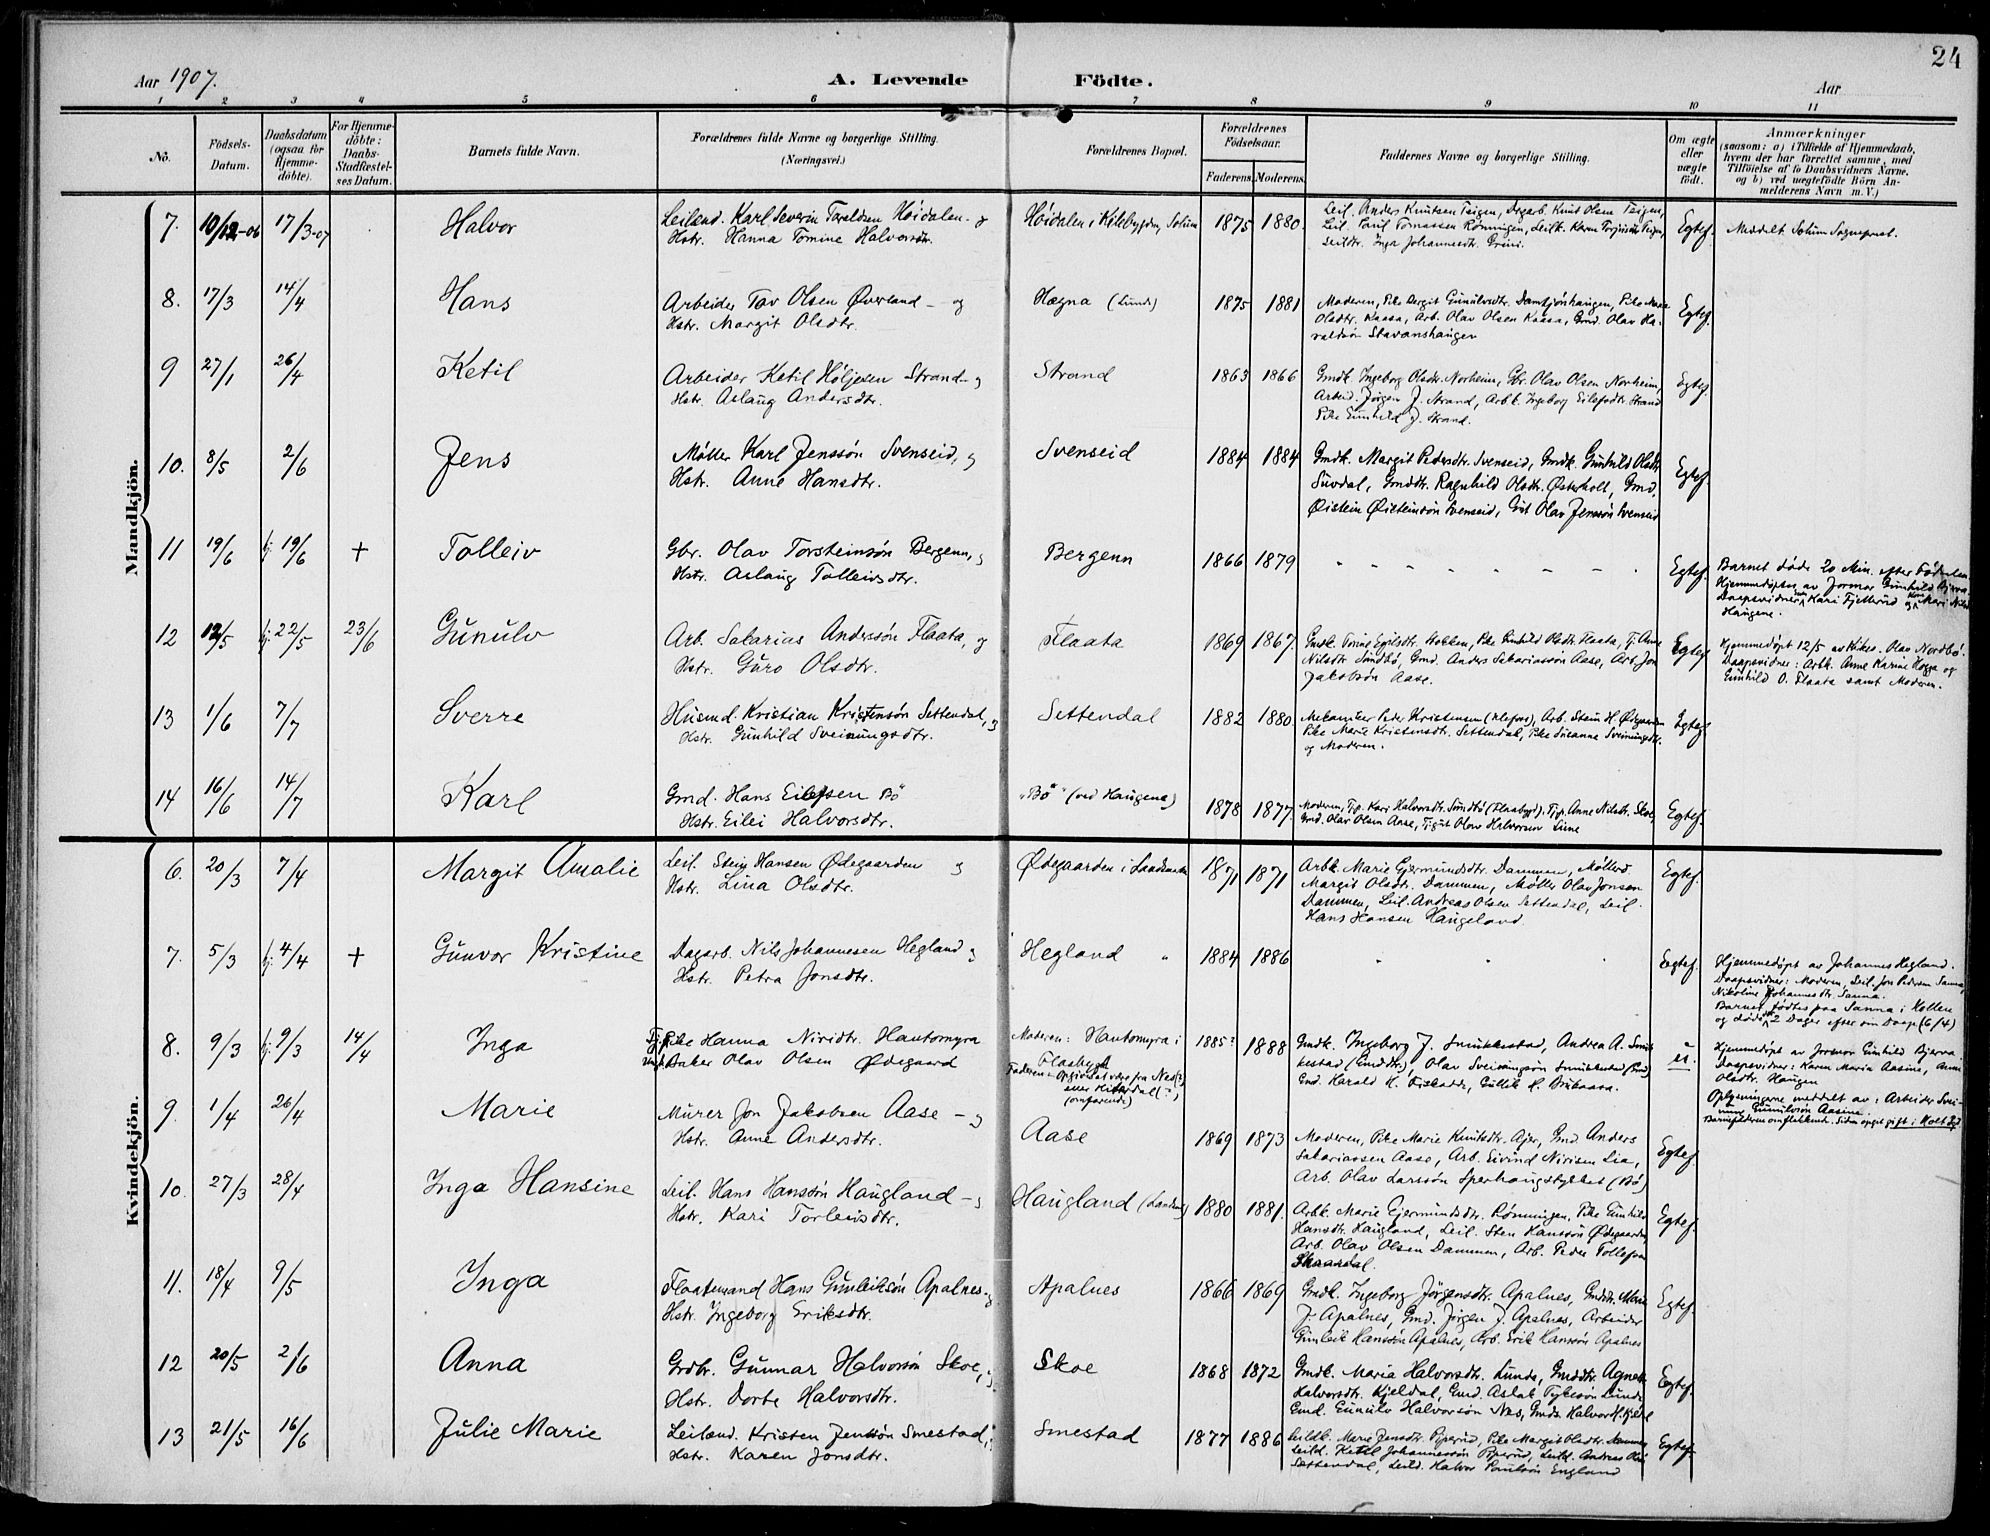 24
Aar 1907.
A. Levende Födte.
Aar
1 2 3 4 5 6 7 8 9 10 11
No.
Födsels-Datum.
Daabsdatum (ogsaa for Hjemme-döbte).
For Hjemme-döbte: Daabs-Stadfæstel-ses Datum.
Barnets fulde Navn.
Forældrenes fulde Navne og borgerlige Stilling.
(Næringsvei.)
Forældrenes Bopæl.
Forældrenes Födselsaar.
Faderens. Moderens.
Faddernes Navne og borgerlige Stilling.
Om ægte eller uægte födt.
Anmærkninger
(saasom: a) i Tilfælde af Hjemmedaab,
hvem der har forrettet samme, med
Tilföielse af to Daabsvidners Navne.
og b) ved uægtefödte Börn An-
melderens Navn m. V.)
Mandkjön.
7. 10/12-06 17/3-07 Halvor
Leilend. Karl Severin Toraldsen Høidalen - og
Hstr. Hanna Tomine Halvorsdtr.
Høidalen i Kilebygden, Solum 1875 1880.
Leil. Anders Knutsen Teigen, Dagarb. Knut Olsen Teigen,
Leil. Paul Tomassen Rønningen, Leilk. Karen Teigen,
Leildtr. Inga Johannesdtr. Grini.
Egtef. Meddelt Solum Sogneprest.
8. 17/3 14/4 Hans
Arbeider Tov Olsen Øverland - og
Hstr. Margit Olsdtr.
Hægna (Lunde) 1875 1881
Moderen, Pike Bergit Gunulvsdtr. Damtjønhaugen, Pike Maria
Olsdtr. Kaasa, Arb. Olav Olsen Kaasa, Gmd. Olav Ha-
raldsøn Stavanshaugen
Egtef.
9 27/1 26/4 Ketil
Arbeider Ketil Høljesen Strand - og
Hstr. Aslaug Andersdtr.
Strand 1863 1866
Gmdk. Ingeborg Olsdtr. Norheim, Gbr. Olav Olsen Norheim,
Arbeid. Jörgen J. Strand, Arb.k. Ingeborg Eilefsdtr. Strand
Pike Gunhild J. Strand.
Egtef.
10. 8/5 2/6 Jens
Møller Karl Jenssøn Svenseid, og
Hstr. Anne Hansdtr.
Svenseid 1884 1884
Gmdk. Margit Pedersdtr. Svenseid, Gmdk. Gunhild Olsdtr.
Suvdal, Gmdtr. Ragnhild Olsdtr. Østerholt, Gmd.
Øistein Øisteinsøn Svenseid, Olav Jenssøn Svenseid
Egtef.
11 19/6 hj. 19/6 + Tolleiv
Gbr. Olav Torsteinsøn Bergenn, og
Hstr. Aslaug Tolleivsdtr.
Bergenn 1866 1879
Egtef.
Barnet døde 20 Min. efter Fødselen.
Hjemmedøpt av Jormor Gunhild Bjerva.
Daapsvidner: Kari Fjellerud og Mari Nils
Haugene.
12 12/5 hj. 22/5 23/6 Gunulv
Arb. Sakarias Anderssøn Flaata, og
Hstr. Guro Olsdtr.
Flaata 1869 1867.
Gmdk. Torine Egilsdtr. Stokken, Pike Gunhild Olsdtr. Flaata, Tj. Anne
Nilsdtr Sundbö, Gmd. Anders Sakariassøn Aase, Arb. Jon
Jakobsøn Aase.
Egtef.
Hjemmedøpt 12/5 av Kirkes. Olav Nordbö.
Daapsvidner: Arbk. Anne Karine Hogga og
Gunhild O. Flaata samt Moderen.
13 1/6 7/7 Sverre
Husmd. Kristian Kristensøn Settendal, og
Hstr. Gunhild Sveinungsdtr.
Settendal 1882 1880.
Mekaniker Peder Kristensen (Ulefos), Arb. Stein H. Ødegaarden
Pike Marie Kristensdtr. Settendal, Pike Susanne Sveinungsdtr.
og Moderen.
Egtef.
14 16/6 14/7 Karl
Gmd. Hans Eilefsen Bö
Hstr. Eilei Halvorsdtr.
"Bö" (ved Haugene) 1878 1877.
Moderen, Tjp. Kari Halvorsdtr. Sundbö (Flaabygd), Tjp. Anne Nilsdtr. Skoe,
Gmd. Olav Olsen Aase, Tjgut Olav Halvorsen Lune
Egtef.
Kvindekjön.
6. 20/3 7/4 Margit Amalie
Leil. Stein Hansen Ødegaarden og
Hstr. Lina Olsdtr.
Ødegaarden i Landsmarken 1871 1871
Arbk. Marie Gjermundsdtr. Dammen, Møllerd.
Margit Olsdtr. Dammen, Møller Olav Jonsen
Dammen, Leil. Andreas Olsen Settendal, Leil.
Hans Hansen Haugeland.
Egtef.
7. 5/3 hj. 4/4 + Gunvor Kristine
Dagarb. Nils Johannesen Hegland og
Hstr. Petra Jonsdtr.
Hegland " 1884 1886
Egtef.
Hjemmedøpt av Johannes Hegland.
Daapsvidner: Moderen, Leil. Jon Pedersen Sanna,
Nikoline Johannesdtr. Sanna.
Barnet fødtes paa Sanna i Holden
og døde der 2 Dager efter sin Daap (6/4)
8. 9/3 hj. 9/3 14/4 Inga
Pike Hanna Niridtr. Hantomyra
Ungk. Baker Olav Olsen Ødegaard
Moderen: Hantomyra i
Flaabygd
Faderen: Opgivet at være fra Nes(?)
eller Hitterdal(?),
(omfarende)
1885? 1888
Gmdk. Ingeborg J. Smukkestad, Andrea A. Smuk-
kestad (Gmddtr), Olav Sveinungsøn Smukkestad
Gmd. Harald K. Fiskodde, Gullik H. Brukaasa.
u.
Hjemmedøpt av Jormor Gunhild Bjerva.
Daapsvidner: Karen Maria Aasine, Anne
Olsdtr. Haugen
Oplysningerne meddelt av: Arbeider Svei-
nung Gunulvsøn Aasine.
Barnefaderen omflakkende. Siden opgit gift i Holt Pgj.
9. 1/4 26/4 Marie
Murer Jon Jakobsen Aase - og
Hstr. Anne Andersdtr.
Aase 1869 1873
Moderen, Pike Marie Knutsdtr. Ajer, Gmd. Anders
Sakariassen Aase, Arb. Eivind Nirisen Lia,
Arb. Olav Larssøn Sperhaugstykket (Bö)
Egtef.
10. 27/3 28/4 Inga Hansine
Leil. Hans Hanssøn Haugland - og
Hstr. Kari Torleivsdtr.
Haugland (Landsm.) 1880 1881.
Arbk. Marie Gjermundsdtr. Rønningen, Pike Gunhild
Hansdtr. Haugland, Leil. Sten Hanssøn Ødegaarden,
Arb. Olav Olsen Dammen, Arb. Peder Tollefsen
Skaardal.
Egtef.
11. 18/4 9/5 Inga
Flaatemand Hans Gunleiksøn Apalnes - og
Hstr. Ingeborg Eriksdtr.
Apalnes 1866 1869
Gmdk. Ingeborg Jörgensdtr. Apalnes, Gmddtr. Marie
J. Apalnes, Gmd. Jörgen J. Apalnes, Arbeider
Gunleik Hanssøn Apalnes, Arb. Erik Hanssøn Apalnes
Egtef.
12 20/5 2/6 Anna
Grdbr. Gunnar Halvorsøn Skoe, og
Hstr. Dorte Halvorsdtr.
Skoe 1868 1872
Gmdk. Maria Halvorsdtr. Lunde, Gmddtr. Agnete
Halvorsdtr. Kjeldal, Gmd. Aslak Tykesøn Lunde
Gmd. Gunulv Halvorsøn Nes, Gmds. Halvor H. Kjeldal
Egtef.
13 21/5 16/6 Julie Marie
Leilænd. Kristen Jenssøn Smestad, og
Hstr. Karen Jonsdtr.
Smestad 1877 1886
Leildk. Marie Jensdtr. Pperud, Pike Margit Olsdtr.
Leild. Ketil Johannessøn Pperud, Leild. Andreas Ols.
Settendal, Leild. Halvor Paulsøn England
Egtef.